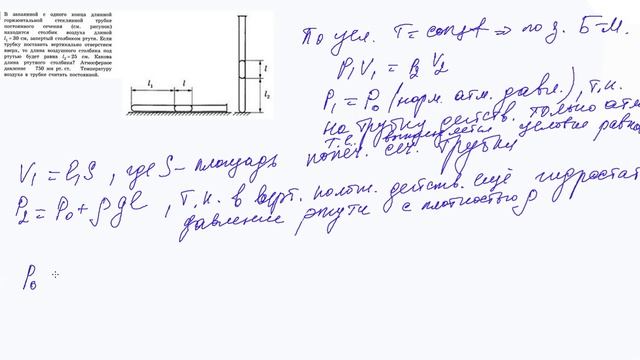 В запаянной с одного конца длинной
горизонтальной стеклянной трубке
постоянного сечения (см. рисунок)
находится столбик воздуха длиной
l₁ = 30 см, запертый столбиком ртути. Если
трубку поставить вертикально отверстием
вверх, то длина воздушного столбика под
ртутью будет равна l₂ = 25 см. Какова
длина ртутного столбика? Атмосферное
давление 750 мм рт. ст. Температуру
воздуха в трубке считать постоянной.
l₁ l
l
l₂
По усл. T = const ⇒ по з. Б-М.
P₁V₁ = P₂V₂
P₁ = P₀ (норм. атм. давл.), т.к.
на трубку действ. только атм
т.е. выполняется условие равно
V₁ = l₁S, где S – площадь попер. сеч. трубки
P₂ = P₀ + ρgl, т.к. в верт. полож. действ. ещё гидростат
давление ртути с плотностью ρ
P₀